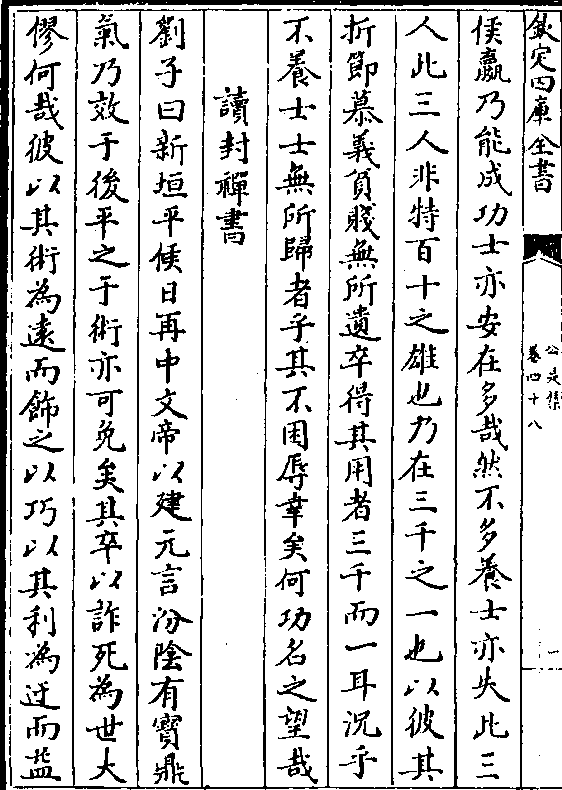 欽定四庫全書
公是集
卷四十八
一
侯嬴乃能成功士亦安在多哉然不多養士亦失此三
人此三人非特百十之雄也乃在三千之一也以彼其
折節慕義負賤無所遺卒得其用者三千而一耳況乎
不養士士無所歸者乎其不困辱幸矣何功名之望哉
讀封禪書
劉子曰新垣平候日再中文帝以建元言汾陰有寶鼎
氣乃效于後平之于術亦可免矣其卒以詐死為世大
僇何哉彼以其術為遠而飾之以巧以其利為迂而益